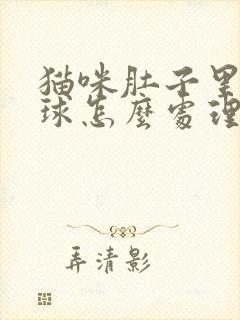 猫咪肚子里
球怎麼處理
弄清影